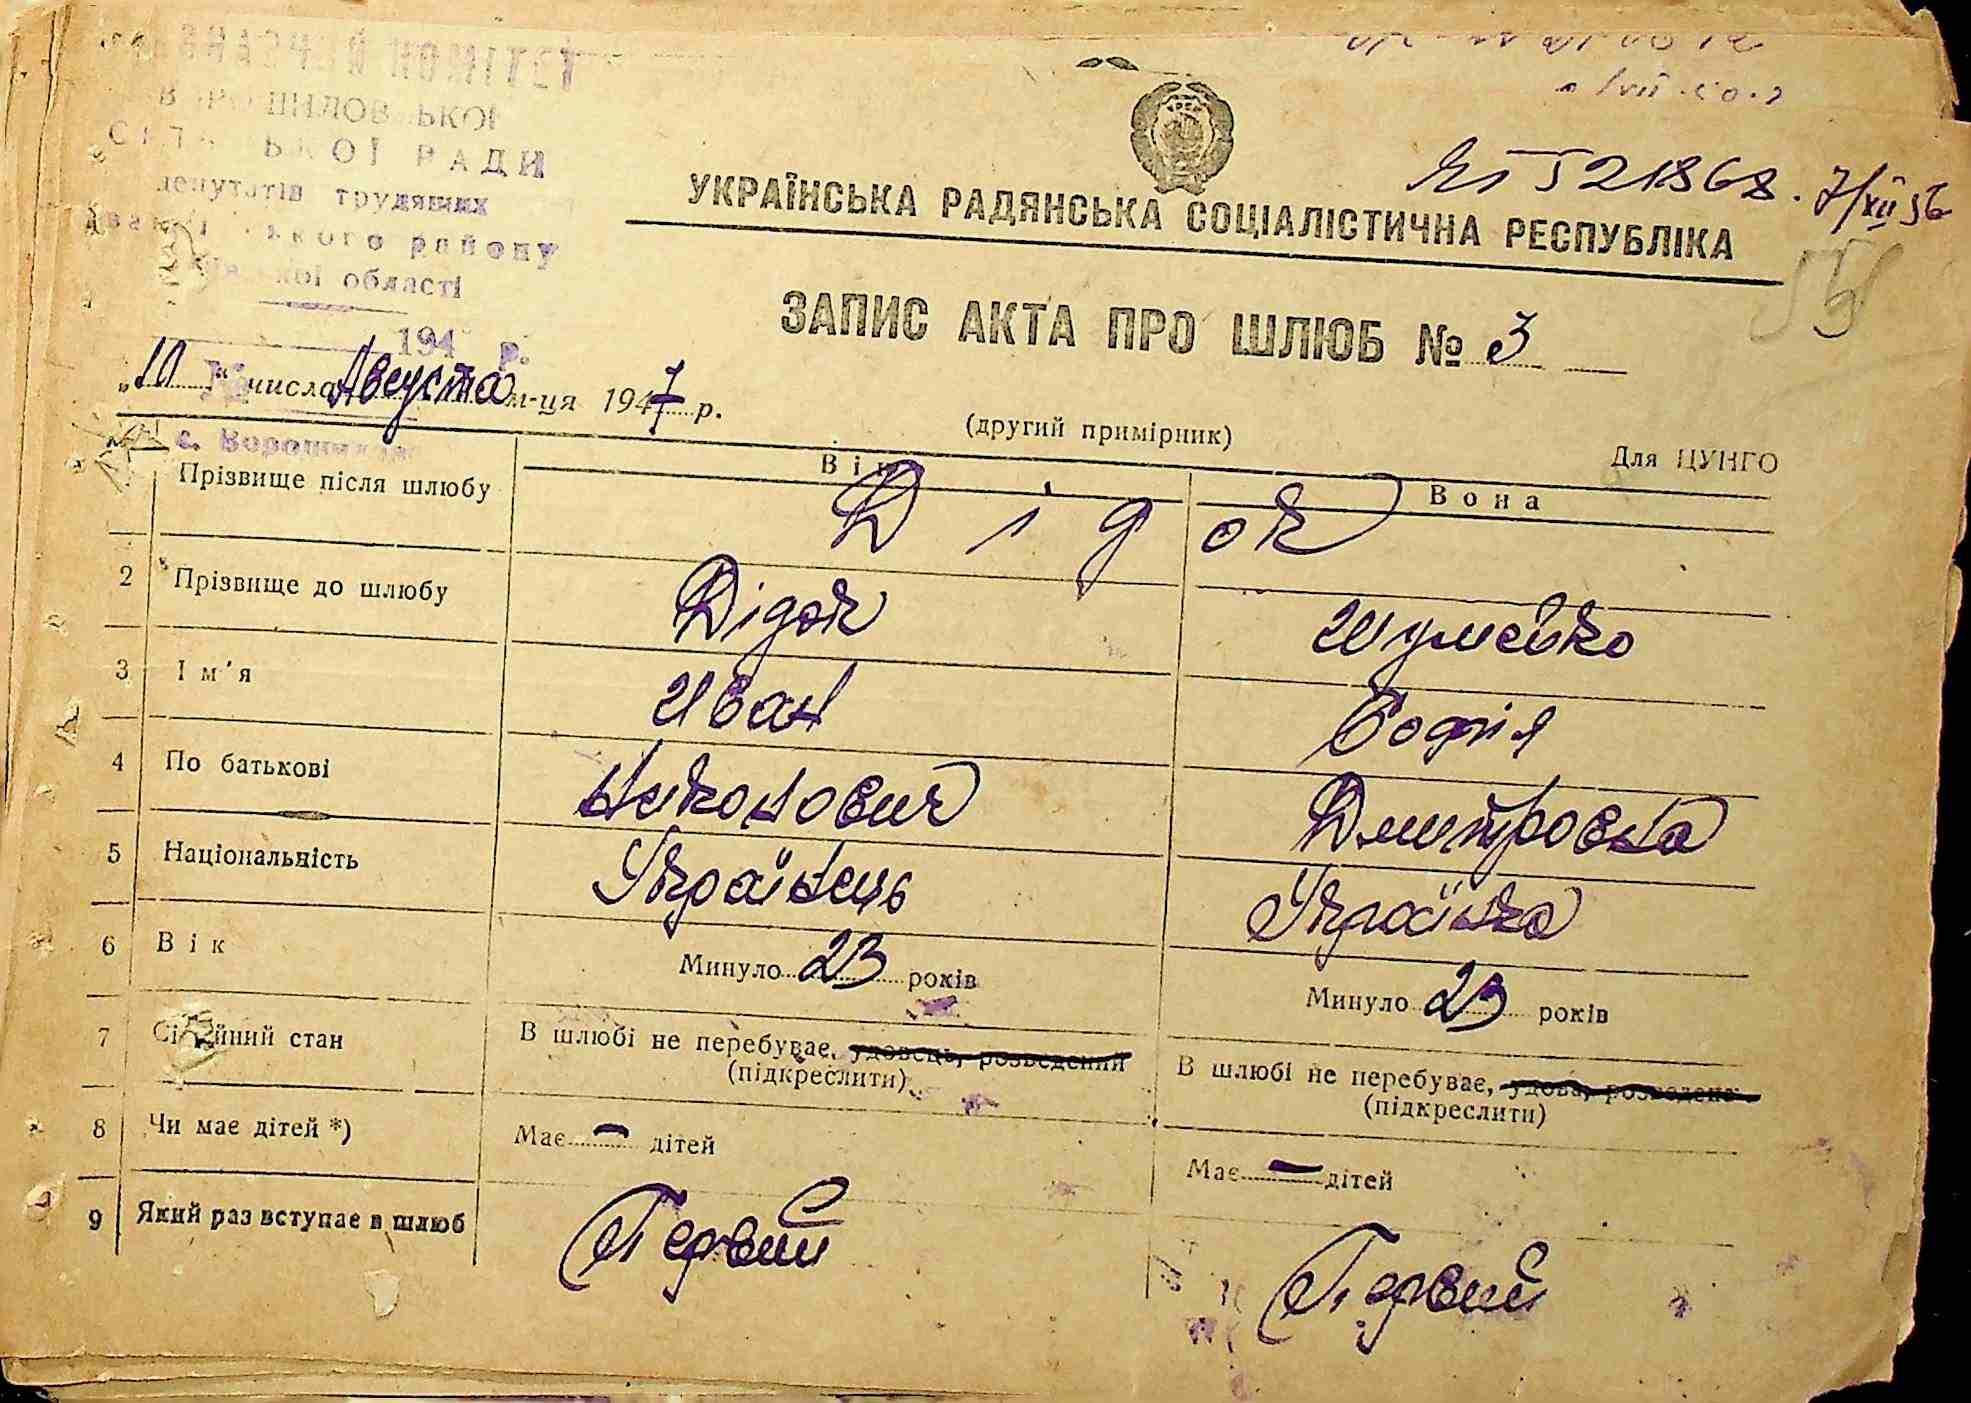 КОМІТЕТ
СІЛЬСЬКОЇ РАДИ
депутатів трудящих
району
області
194 р.
№ 521868. 7/XII 56
УКРАЇНСЬКА РАДЯНСЬКА СОЦІАЛІСТИЧНА РЕСПУБЛІКА
ЗАПИС АКТА ПРО ШЛЮБ № 3
„10“ числа Августа м-ця 1947 р.
(другий примірник)
Для ЦУНГО
с.
Він Вона
Прізвище після шлюбу Дідок
2 Прізвище до шлюбу Дідок Шумейко
3 Ім'я Иван Софія
4 По батькові Никонович Дмитровна
5 Національність Українець Українка
6 Вік Минуло 23 років Минуло 23 років
7 Сімейний стан В шлюбі не перебуває, удовець, розведений В шлюбі не перебуває, удова, розведена
(підкреслити) (підкреслити)
8 Чи має дітей *) Має — дітей Має — дітей
9 Який раз вступає в шлюб Первий Первий